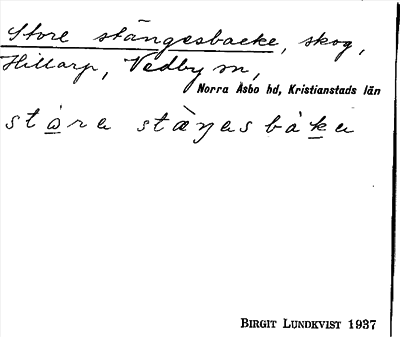 Store stängesbacke, skog,
Hillarp, Vedby sn,
Norra Åsbo hd, Kristianstads län
BIRGIT LUNDKVIST 1937